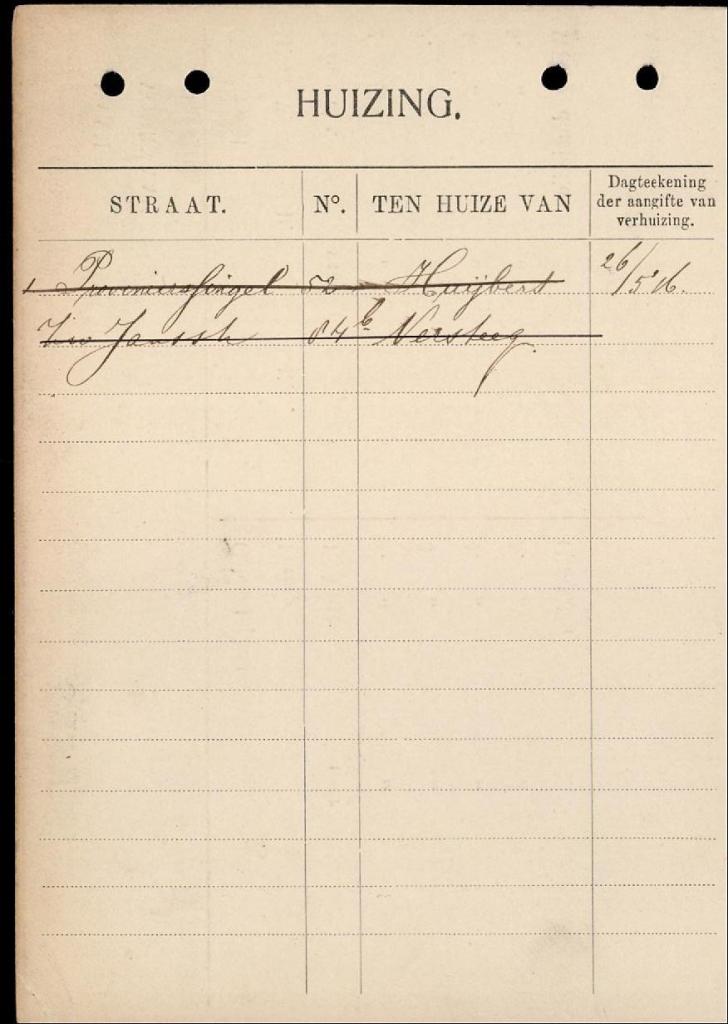 HUIZING.
STRAAT. No. TEN HUIZE VAN Dagteekening der aangifte van verhuizing.
Provenierssingel 52 Huijbers 26/5'16.
Zw Jansstr 84b Versteeg